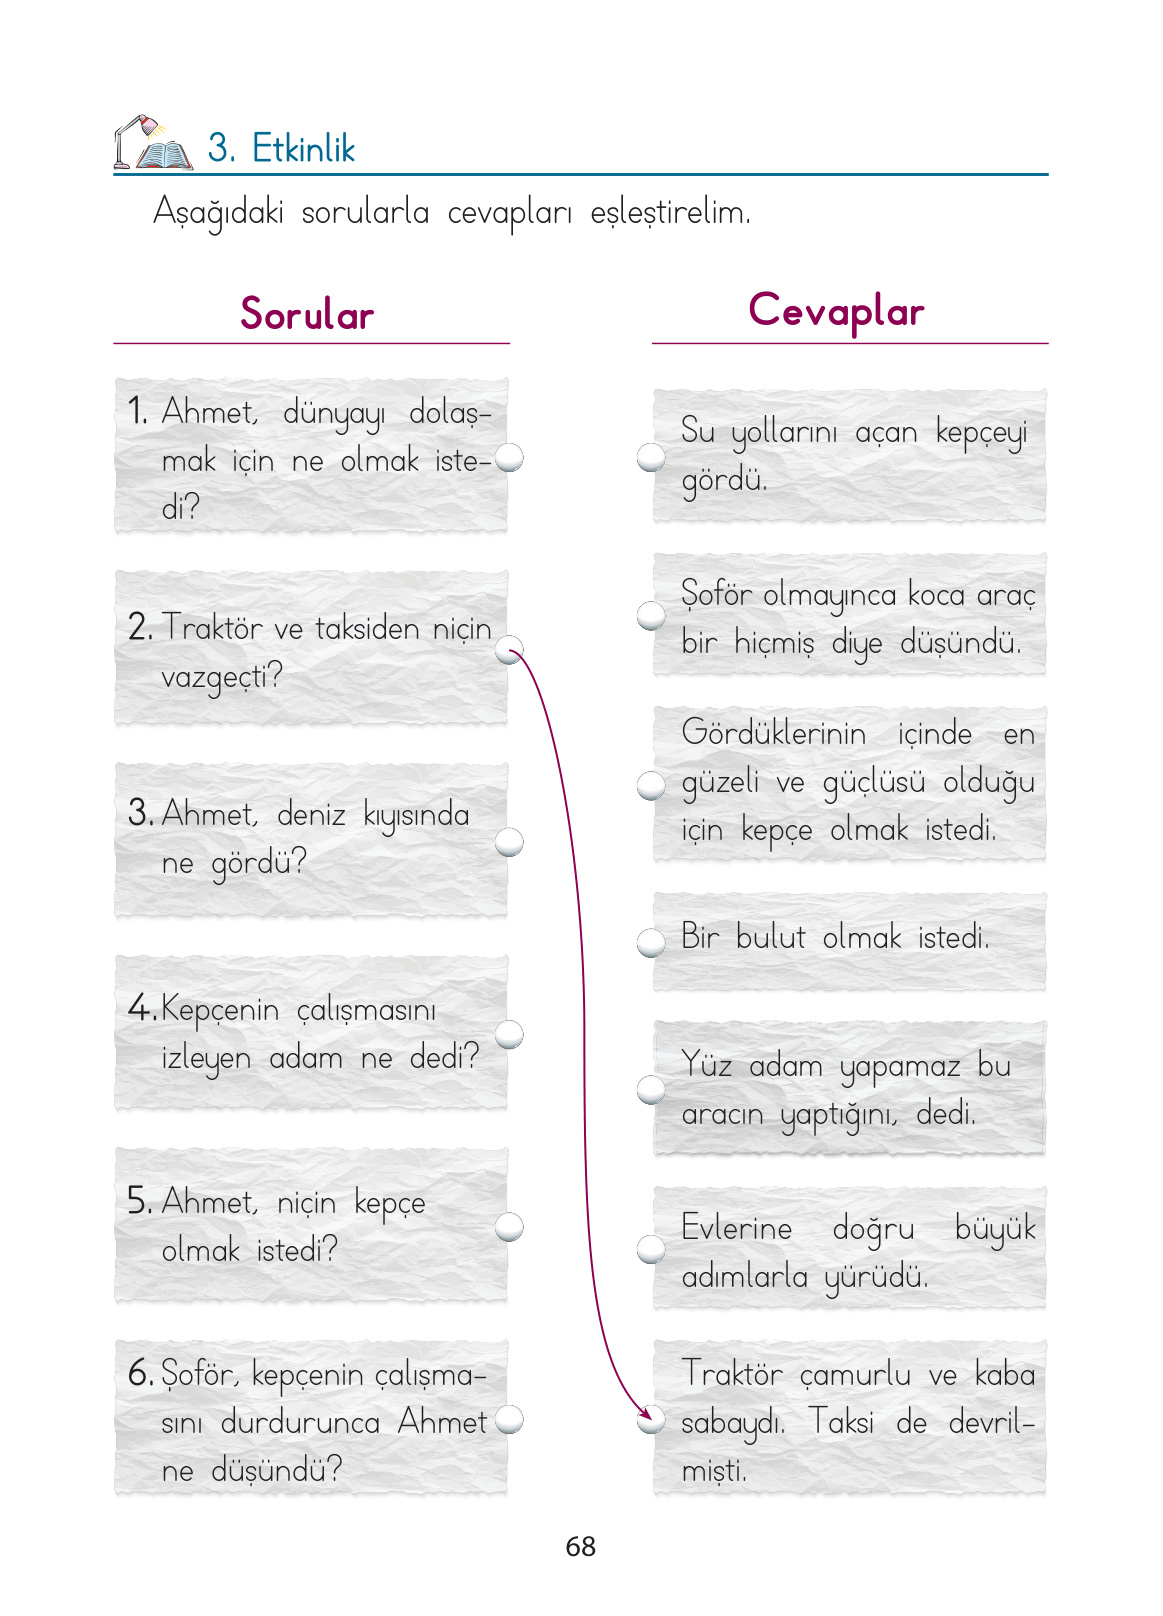 3. Etkinlik
Aşağıdaki sorularla cevapları eşleştirelim.
Sorular
1. Ahmet, dünyayı dolaş-
mak için ne olmak iste-
di?
2. Traktör ve taksiden niçin
vazgeçti?
3. Ahmet, deniz kıyısında
ne gördü?
4. Kepçenin çalışmasını
izleyen adam ne dedi?
5. Ahmet, niçin kepçe
olmak istedi?
6. Şoför, kepçenin çalışma-
sını durdurunca Ahmet
ne düşündü?
Cevaplar
Su yollarını açan kepçeyi
gördü.
Şoför olmayınca koca araç
bir hiçmiş diye düşündü.
Gördüklerinin içinde en
güzeli ve güçlüsü olduğu
için kepçe olmak istedi.
Bir bulut olmak istedi.
Yüz adam yapamaz bu
aracın yaptığını, dedi.
Evlerine doğru büyük
adımlarla yürüdü.
Traktör çamurlu ve kaba
sabaydı. Taksi de devril-
mişti.
68